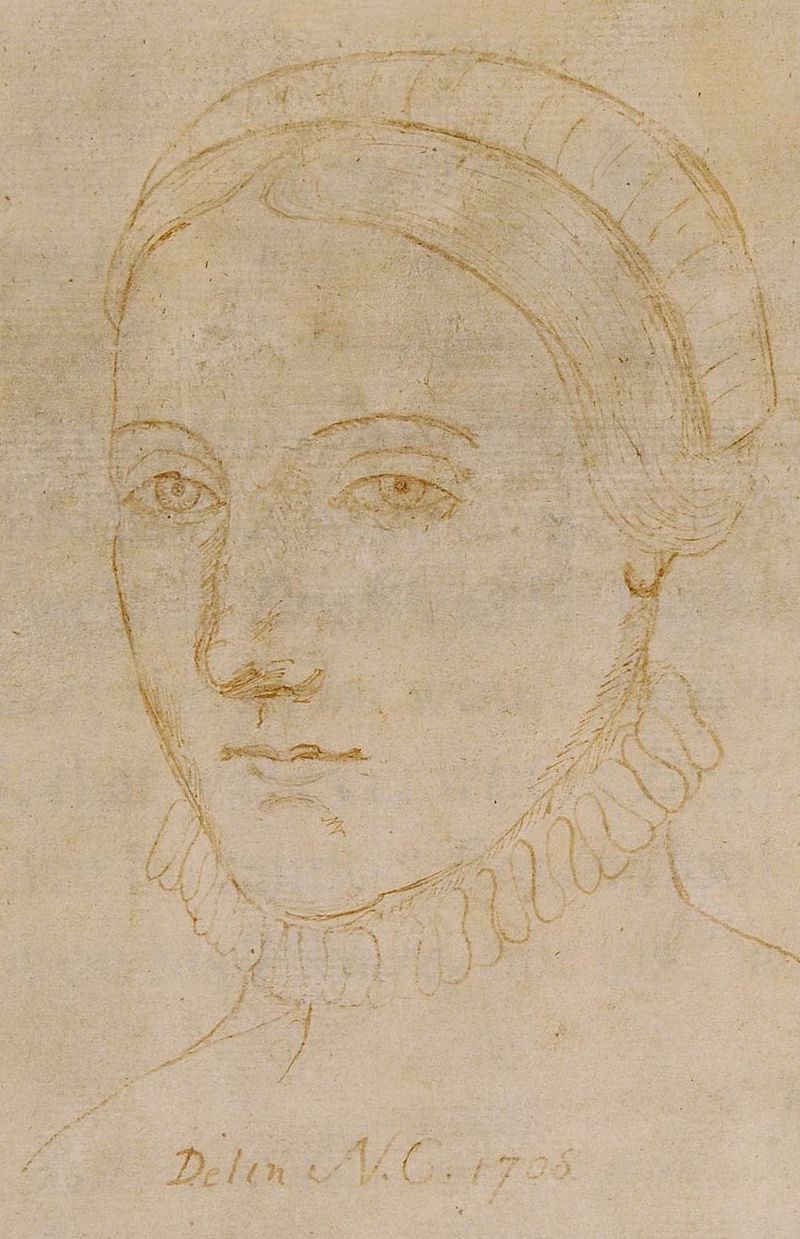 Delin N.C. 1708